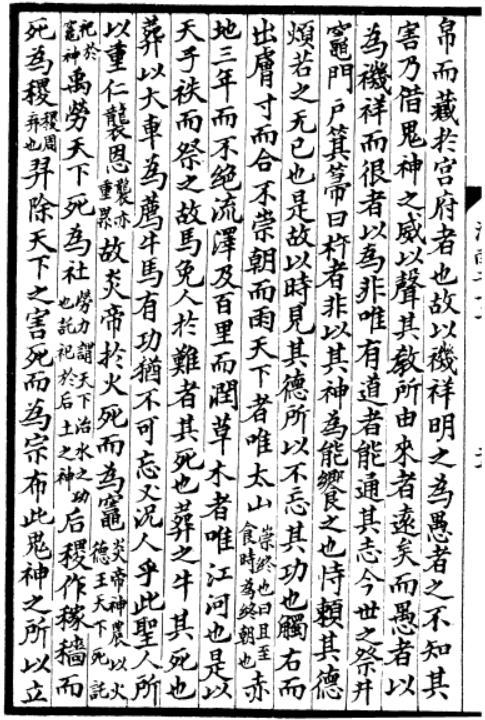 帛而藏於宫府者也故以禨祥明之為愚者之不知其
害乃借鬼神之威以聲其教所由來者遠矣而愚者以
為禨祥而很者以為非唯有道者能通其志今世之祭井
竈門戶箕箒曰杵者非以其神為能饗之也恃頼其德
煩若之无已也是故以時見其德所以不忘其功也觸右而
出膚寸而合不崇朝而雨天下者唯太山崇終也日旦至食時為終朝也赤
地三年而不絕流澤及百里而潤草木者唯江河也是以
天子祑而祭之故馬免人於難者其死也葬之牛其死也
葬以大車為薦牛馬有功猶不可忘又況人乎此聖人所
以重仁襲恩襲亦重累故炎帝扵火死而為竈炎帝神農以火德王天下死託
祀於竈神禹勞天下死為社勞力謂天下治水之功也託祀於后土之神后稷作稼穡而
死為稷稷周弃也羿除天下之害死而為宗布此鬼神之所以立